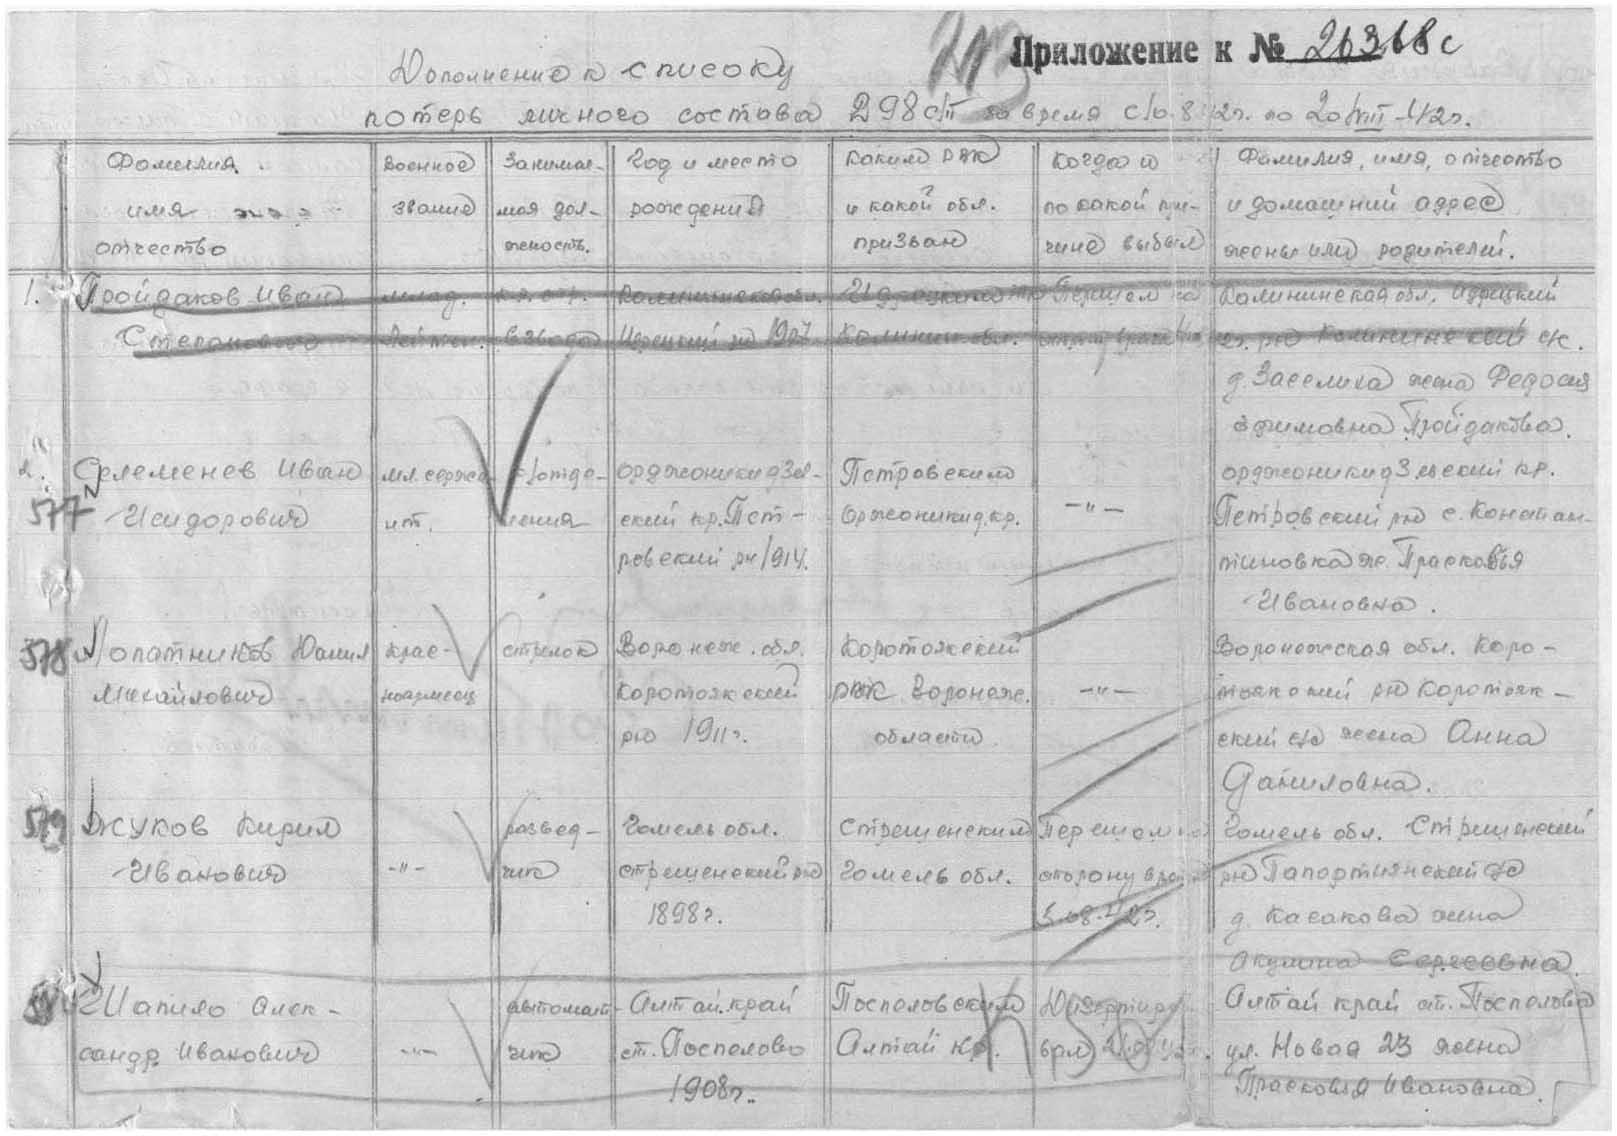 213
Приложение к № 26368с
Дополнение к списоку
потерь личного состава 298 с/п за время с 10.8.42г. по 20/VIII-42г.
Фамилия имя отчество
Военное звание
Занимае-мая дол-жность.
Год и место рождения
Каким РВК и какой обл. призван
Когда и по какой при-чине выбыл
Фамилия, имя, отчество и домашний адрес жены или родителей.
1. Пройдаков Иван Степанович
млад. лейтен.
взвода
Калининская обл. Идрецкий рн 1907
Идрецким Калинин. обл.
Перешел на сторону врага
Калининская обл. Идрицкий рн Калининский с/с. д. Заселиха жена Федосия Ефимовна Пройдакова.
2. 577 Селеменев Иван Исидорович
мл. сержа-нт.
к/отде-ления
Орджоникидзев-ский кр. Пет-ровский рн 1914.
Петровским Орджоникид. кр.
-"-
Орджоникидзевский кр. Петровский рн с. Констан-тиновка ж. Прасковья Ивановна.
578 Лопатников Данил Михайлович
крас-ноармеец
стрелок
Воронеж. обл. Коротоякский рн 1911г.
Коротоякский РВК Воронеж. области
-"-
Воронежская обл. Коро-тоякский рн Коротояк-ский с/с жена Анна Даниловна.
579 Жуков Кирил Иванович
-"-
развед-чик
Гомель обл. Стрешенский рн 1898г.
Стрешенским Гомель обл.
Перешел на сторону врага 5.08.42г.
Гомель обл. Стрешенский рн Папортнянский с/с д. Касакова жена Акулина Сергеевна.
Шапило Алек-сандр Иванович
-"-
автомат-чик
Алтай. край ст. Поспелово 1908г.
Поспеловским Алтай кр.
Дизертиро-
Алтай край ст. Поспелова ул. Новая 23 жена Прасковья Ивановна.